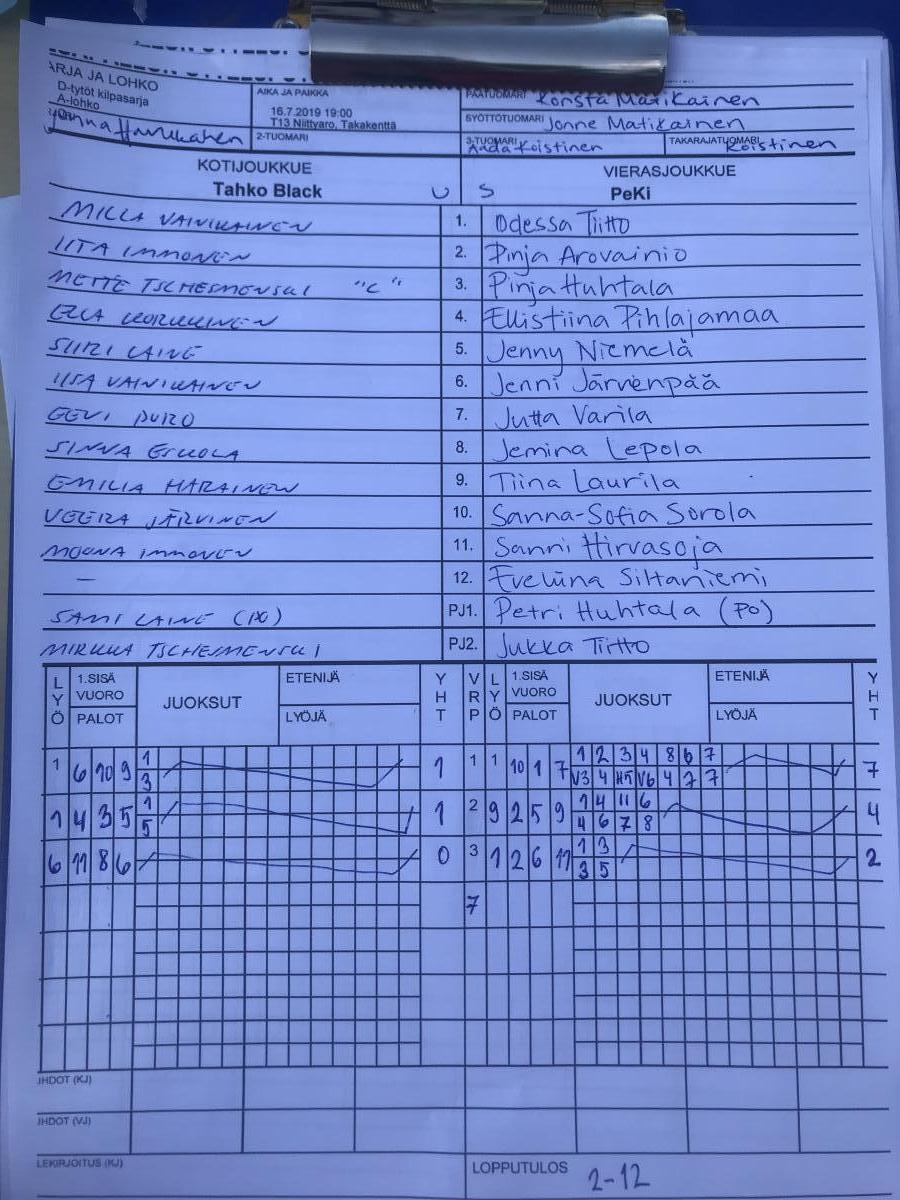 ARJA JA LOHKO
D-tytöt kilpasarja
A-lohko
AIKA JA PAIKKA
16.7.2019 19:00
T13 Niittyaro, Takakenttä
2-TUOMARI
PÄÄTUOMARI Konsta Matikainen
SYÖTTÖTUOMARI Jonne Matikainen
3-TUOMARI Koistinen TAKARAJATUOMARI Koistinen
KOTIJOUKKUE VIERASJOUKKUE
Tahko Black U S PeKi
MILLA VAINIKAINEN 1. Odessa Tiitto
IITA IMMONEN 2. Pinja Arovainio
METTE TSCHESMENSKI "C" 3. Pinja Huhtala
ELLA KORKKINEN 4. Ellistiina Pihlajamaa
SIIRI LAINE 5. Jenny Niemelä
IISA VAINIKAINEN 6. Jenni Järvenpää
EEVI PURO 7. Jutta Varila
SINNA ESKOLA 8. Jemina Lepola
EMILIA HARAINEN 9. Tiina Laurila
VEERA JÄRVINEN 10. Sanna-Sofia Sorola
MOONA IMMONEN 11. Sanni Hirvasoja
— 12. Eveliina Siltaniemi
SAMI LAINE (PO) PJ1. Petri Huhtala (PO)
MIRKKA TSCHESMENSKI PJ2. Jukka Tiitto
LYÖ 1.SISÄ VUORO PALOT JUOKSUT ETENIJÄ LYÖJÄ YHT VRP LYÖ 1.SISÄ VUORO PALOT JUOKSUT ETENIJÄ LYÖJÄ YHT
1 6 10 9 1 1 1 1 10 1 7 1 2 3 4 8 6 7 7
3 V3 4 HT V6 4 7 7
1 4 3 5 1 1 2 9 2 5 9 1 4 11 6 4
5 4 6 7 8
6 11 8 6 0 3 1 2 6 11 1 3 2
3 5
7
JHDOT (KJ)
JHDOT (VJ)
LEKIRJOITUS (KJ) LOPPUTULOS 2-12